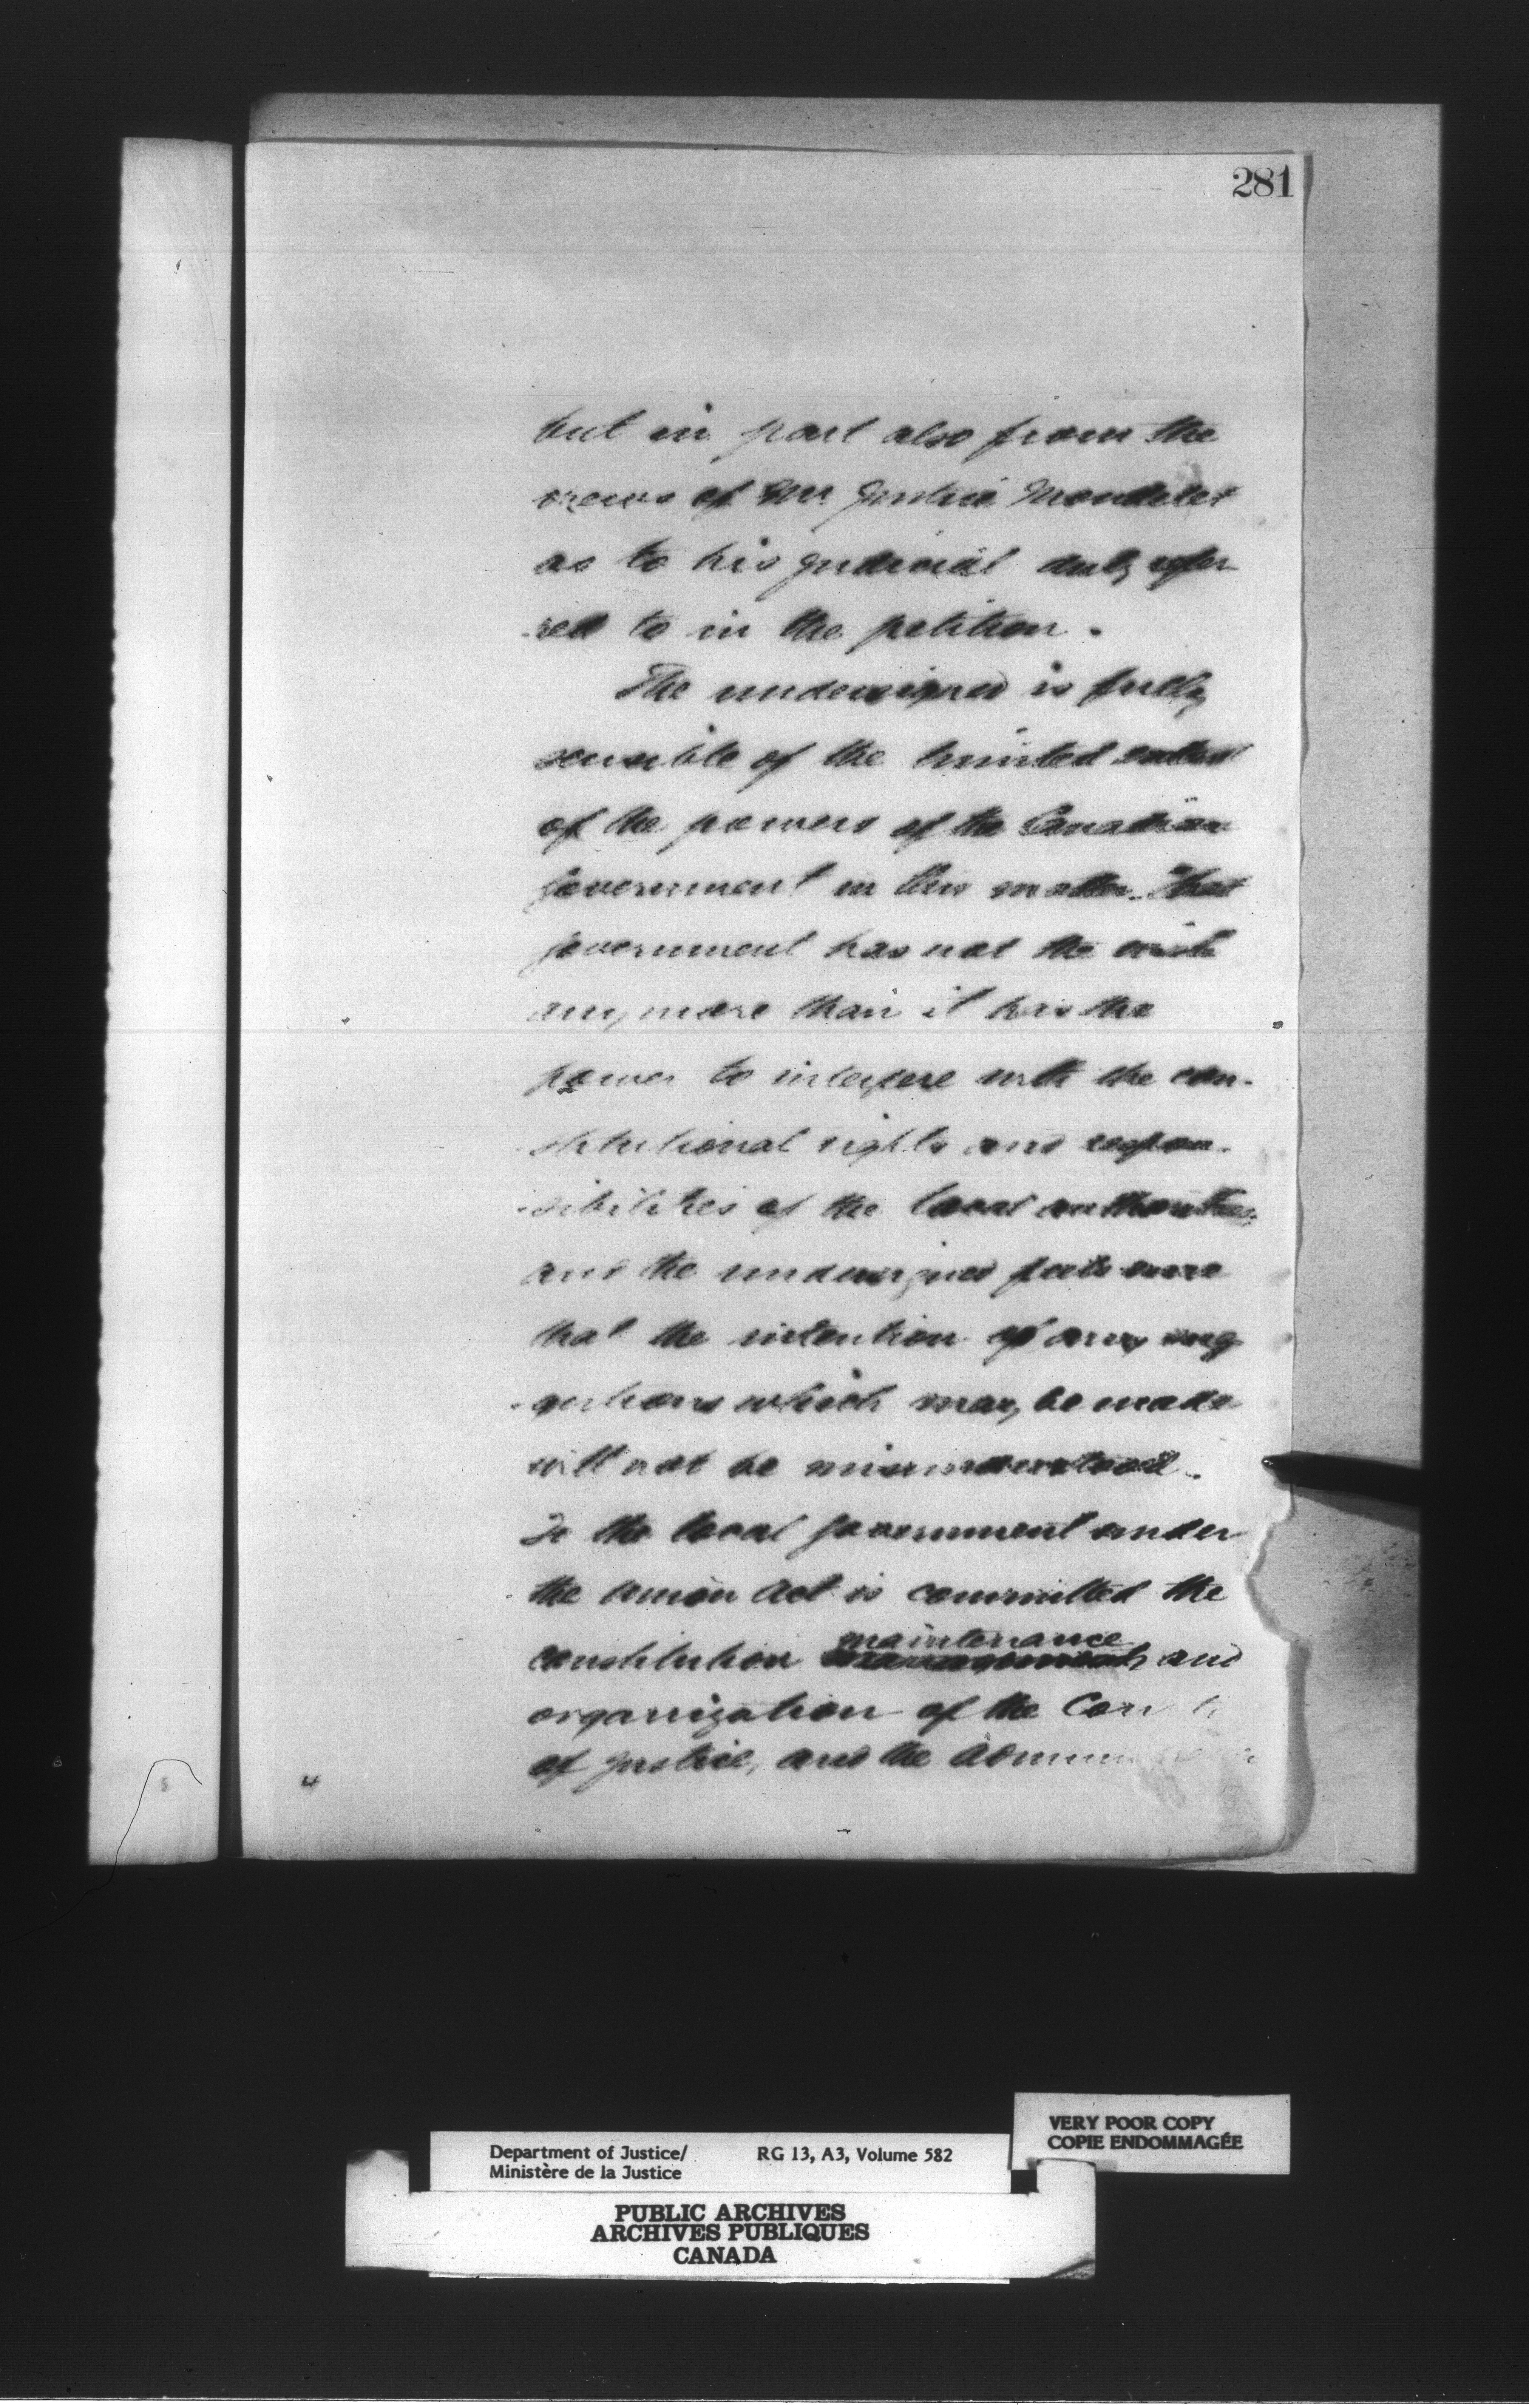 281
but in part also from the
views of Mr Justice Mondelet
as to his judicial duty refer
-red to in the petition.
The undersigned is fully
sensible of the limited extent
of the powers of the Canadian
Government in this matter. That
Government has not the wish
any more than it has the
power to interfere with the con-
-stitutional rights and respon-
-sibilities of the local authorities,
and the undersigned feels sure
that the intention of any sug
-gestions which may be made
will not be misunderstood.
To the local Government under
the Union Act is committed the
maintenance
constitution and
organization of the Courts
of Justice, and the
Department of Justice/
Ministère de la Justice
RG 13, A3, Volume 582
VERY POOR COPY
COPIE ENDOMMAGÉE
PUBLIC ARCHIVES
ARCHIVES PUBLIQUES
CANADA